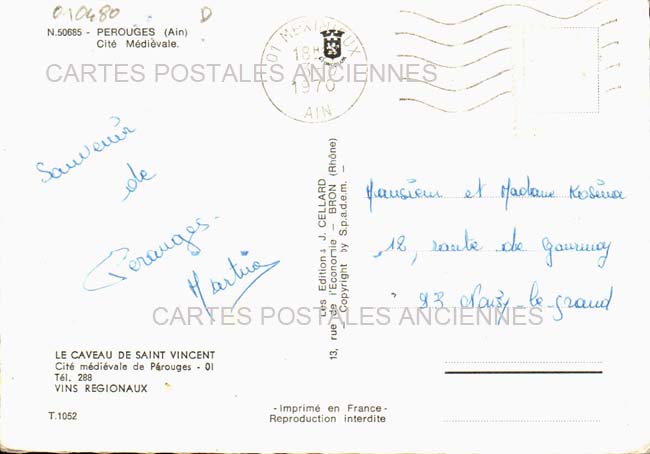 010480
D
N.50685 - PEROUGES (Ain)
Cité Médièvale.
01 MEXIMIEUX
18H
1970
AIN
CARTES POSTALES ANCIENNES
Souvenir
de
Pérouges -
Martine
Les Editions J. CELLARD
13, rue de l'Economie - BRON (Rhône)
- Copyright by S.p.a.d.e.m. -
Monsieur et Madame
12, route de Gournay
93 Noisy-le-grand
CARTES POSTALES ANCIENNES
LE CAVEAU DE SAINT VINCENT
Cité médiévale de Pérouges - 01
Tél. 288
VINS REGIONAUX
T.1052
- Imprimé en France -
Reproduction interdite